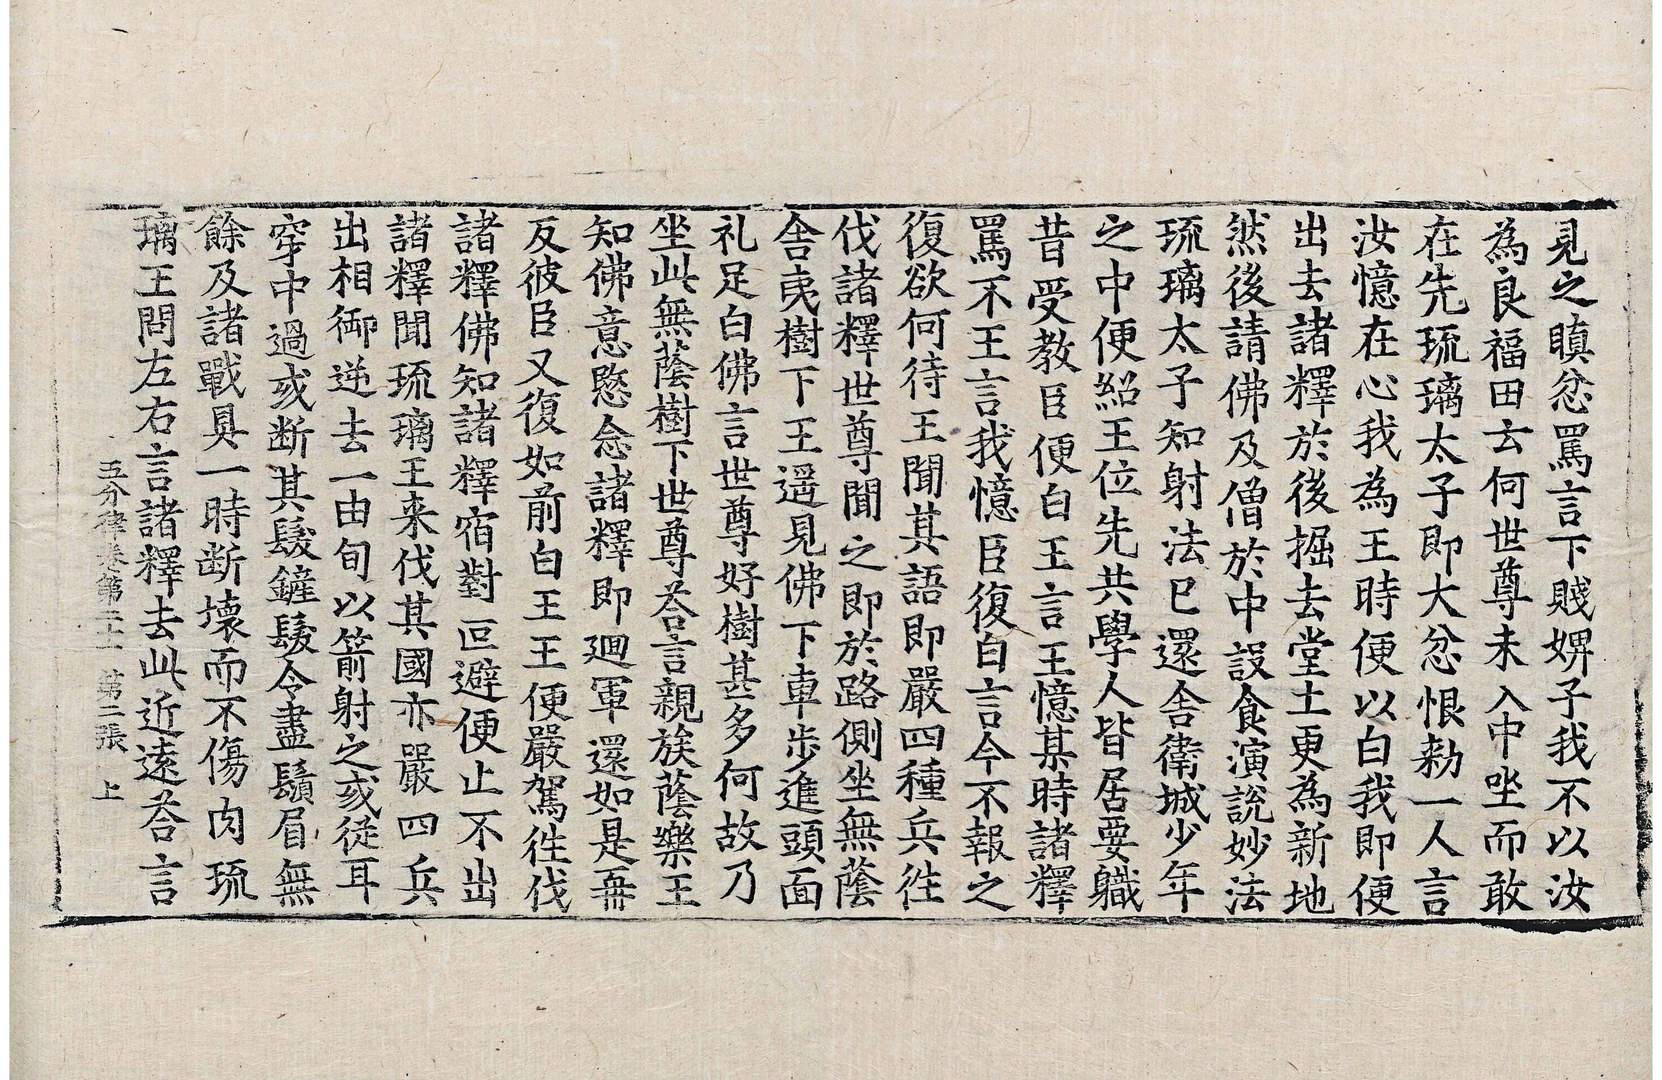 見之瞋忿罵言下賤婢子我不以汝
為良福田云何世尊未入中坐而敢
在先琉璃太子即大忿恨勑一人言
汝憶在心我為王時便以白我即便
出去諸釋於後掘去堂土更為新地
然後請佛及僧於中設食演說妙法
琉璃太子知射法已還舍衛城少年
之中便紹王位先共學人皆居要職
昔受教臣便白王言王憶某時諸釋
罵不王言我憶臣復白言今不報之
復欲何待王聞其語即嚴四種兵徃
伐諸釋世尊聞之即於路側坐無蔭
舍夷樹下王遥見佛下車步進頭面
礼足白佛言世尊好樹甚多何故乃
坐此無蔭樹下世尊荅言親族蔭樂王
知佛意愍念諸釋即迴軍還如是再
反彼臣又復如前白王王便嚴駕徃伐
諸釋佛知諸釋宿對叵避便止不出
諸釋聞琉璃王来伐其國亦嚴四兵
出相御逆去一由旬以箭射之或從耳
穿中過或断其髮鏟鬚令盡鬚眉無
餘及諸戰具一時断壊而不傷肉琉
璃王問左右言諸釋去此近遠荅言
五分律卷第二十一 第二張 上